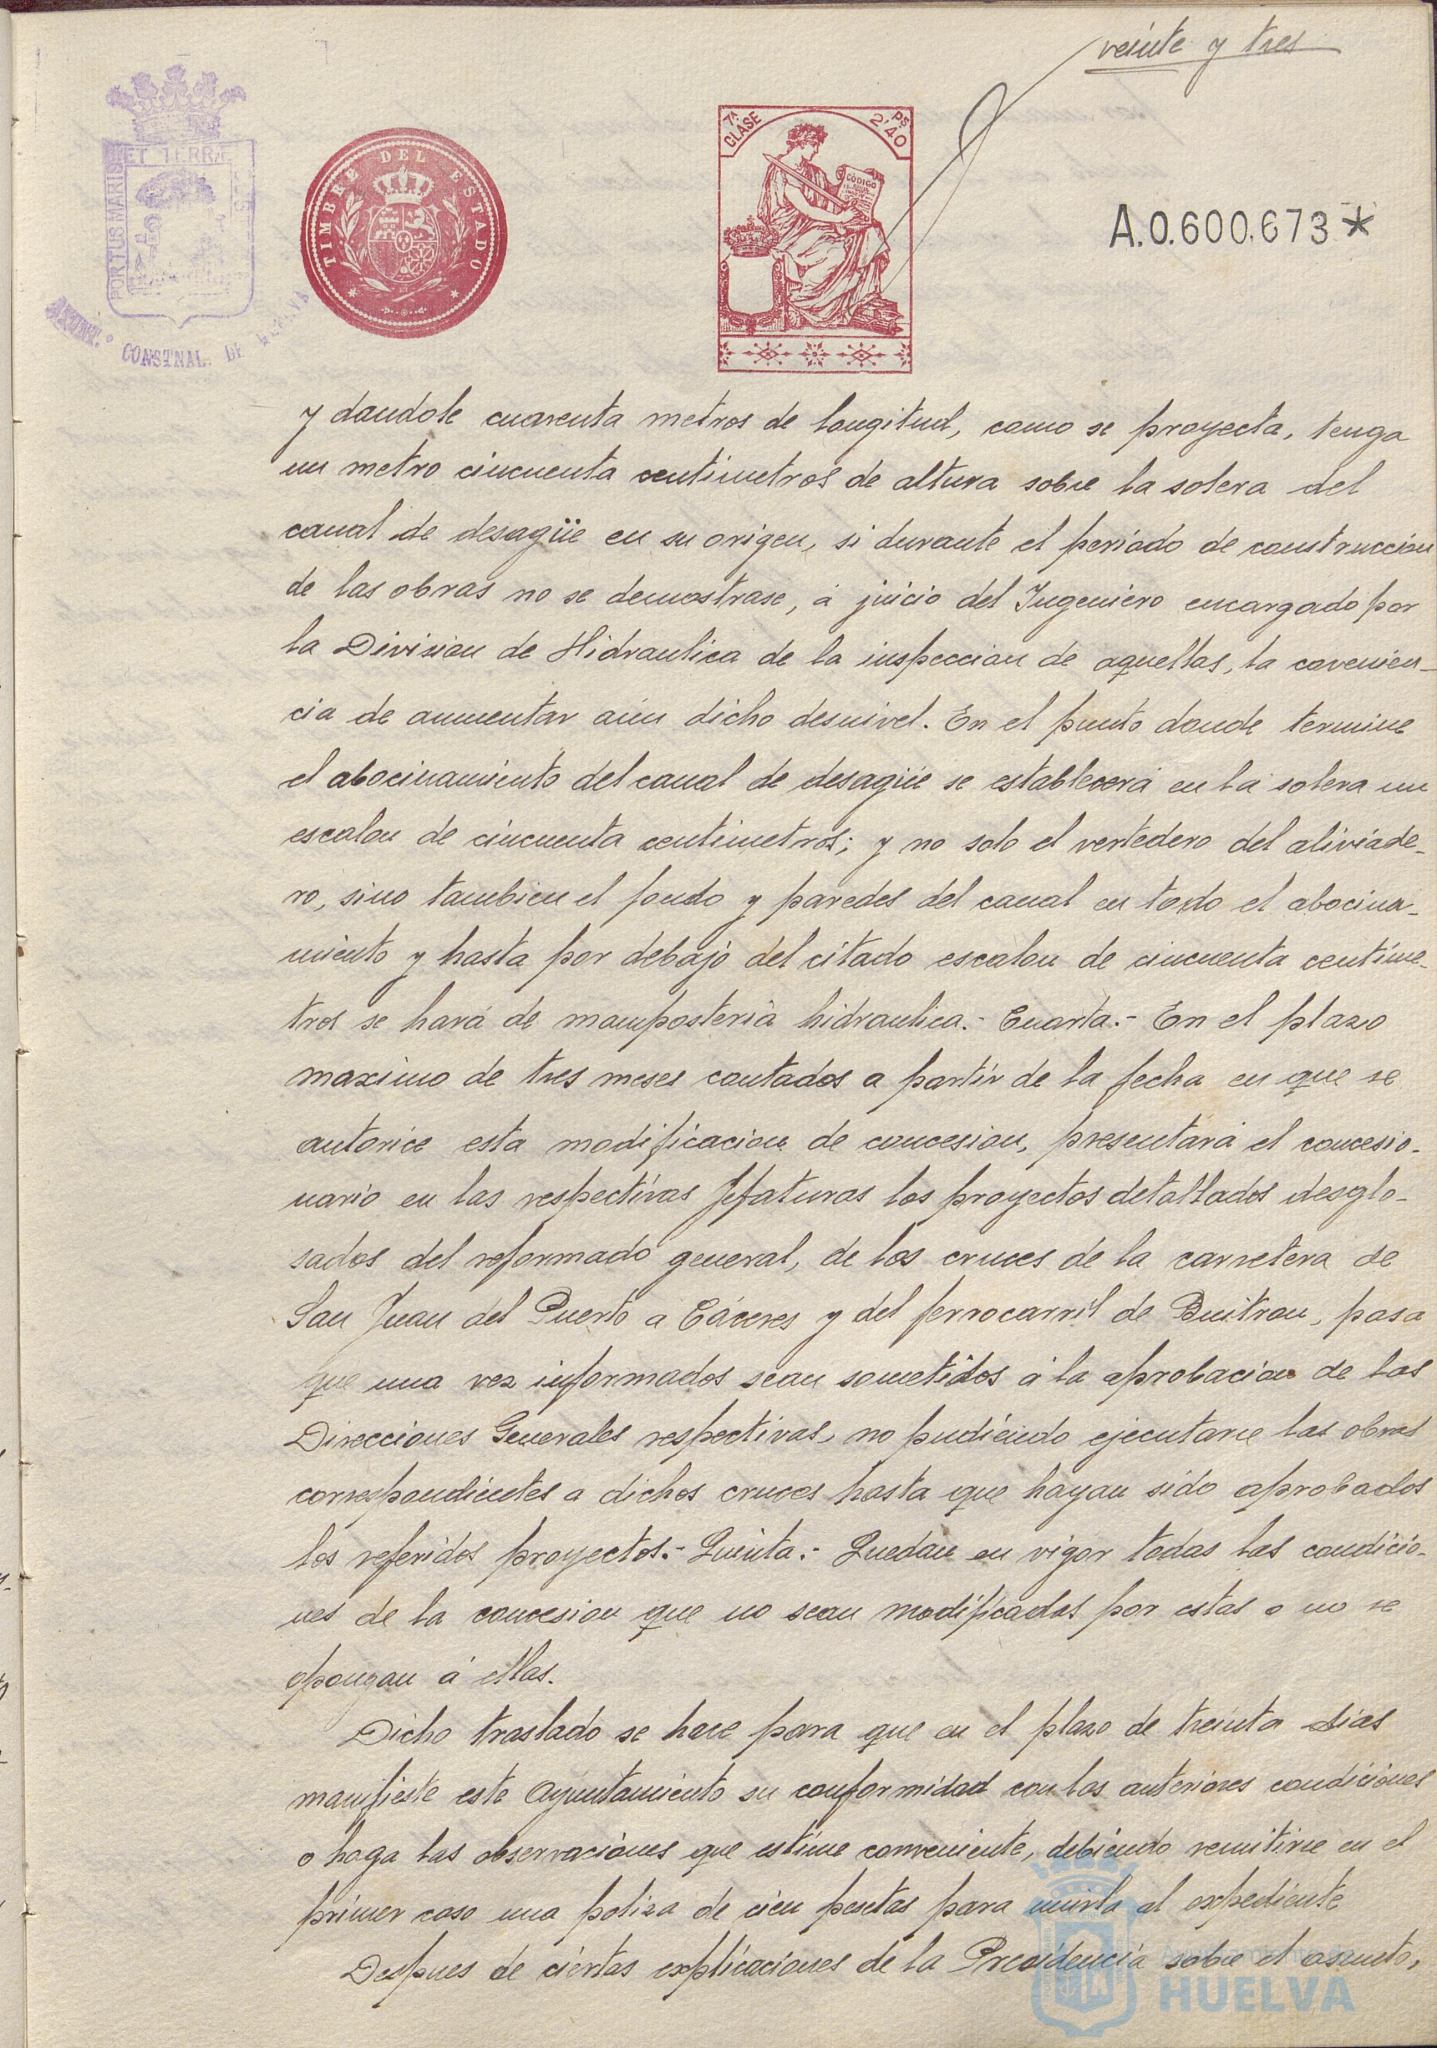 veinte y tres
PORTUS MARIS ET TERRÆ
CONSTNAL. DE HUELVA
TIMBRE DEL ESTADO
7ª CLASE
Ps 2'40
CÓDIGO
A.0.600.673*
y dandole cuarenta metros de longitud, como se proyecta, tenga
un metro cincuenta centimetros de altura sobre la solera del
canal de desagüe en su origen, si durante el periodo de construccion
de las obras no se demostrase, á juicio del Ingeniero encargado por
la Division de Hidraulica de la inspeccion de aquellas, la convenien-
cia de aumentar aún dicho desnivel. En el punto donde termine
el abocinamiento del canal de desagüe se establecerá en la solera un
escalon de cincuenta centimetros; y no solo el vertedero del aliviade-
ro, sino tambien el fondo y paredes del canal en todo el abocina-
miento y hasta por debajo del citado escalon de cincuenta centime-
tros se hará de mamposteria hidraulica.- Cuarta.- En el plazo
maximo de tres meses contados a partir de la fecha en que se
autorice esta modificacion de concesion, presentará el concesio-
nario en las respectivas Jefaturas los proyectos detallados desglo-
sados del reformado general, de los cruces de la carretera de
San Juan del Puerto a Cáceres y del ferrocarril de Buitron, pasa
que una vez informados sean sometidos á la aprobacion de las
Direcciones Generales respectivas, no pudiendo ejecutarse las obras
correspondientes a dichos cruces hasta que hayan sido aprobados
los referidos proyectos.- Quinta.- Quedan en vigor todas las condicio-
nes de la concesion que no sean modificadas por estas o no se
opongan á ellas.
Dicho traslado se hace para que en el plazo de treinta dias
manifieste este Ayuntamiento su conformidad con las anteriores condiciones
o haga las observaciones que estime conveniente, debiendo remitirse en el
primer caso una poliza de cien pesetas para unirla al expediente
Despues de ciertas explicaciones de la Presidencia sobre el asunto,
Ayuntamiento de
HUELVA